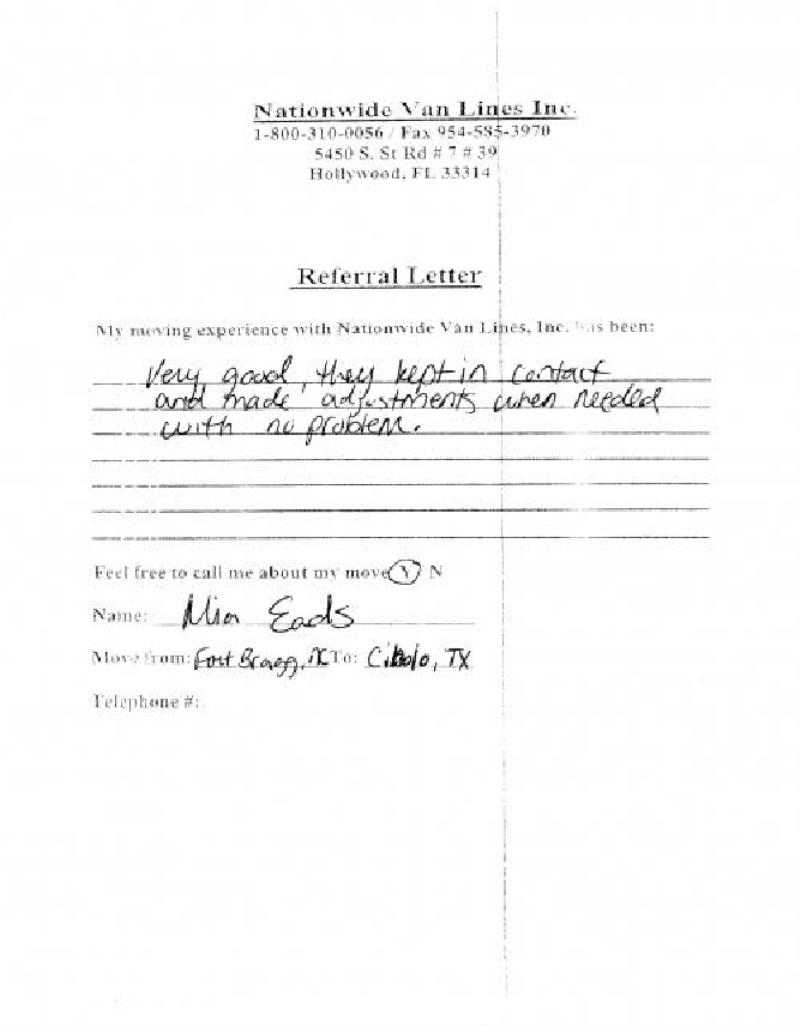 Nationwide Van Lines Inc.
1-800-310-0056 / Fax 954-585-3970
5450 S. St Rd # 7 # 39
Hollywood, FL 33314
Referral Letter
My moving experience with Nationwide Van Lines, Inc. has been:
Very good, they kept in contact
and made adjustments when needed
with no problem.
Feel free to call me about my move Y N
Name: Mia Eads
Move from: Fort Bragg, NC To: Cibolo, TX
Telephone #: